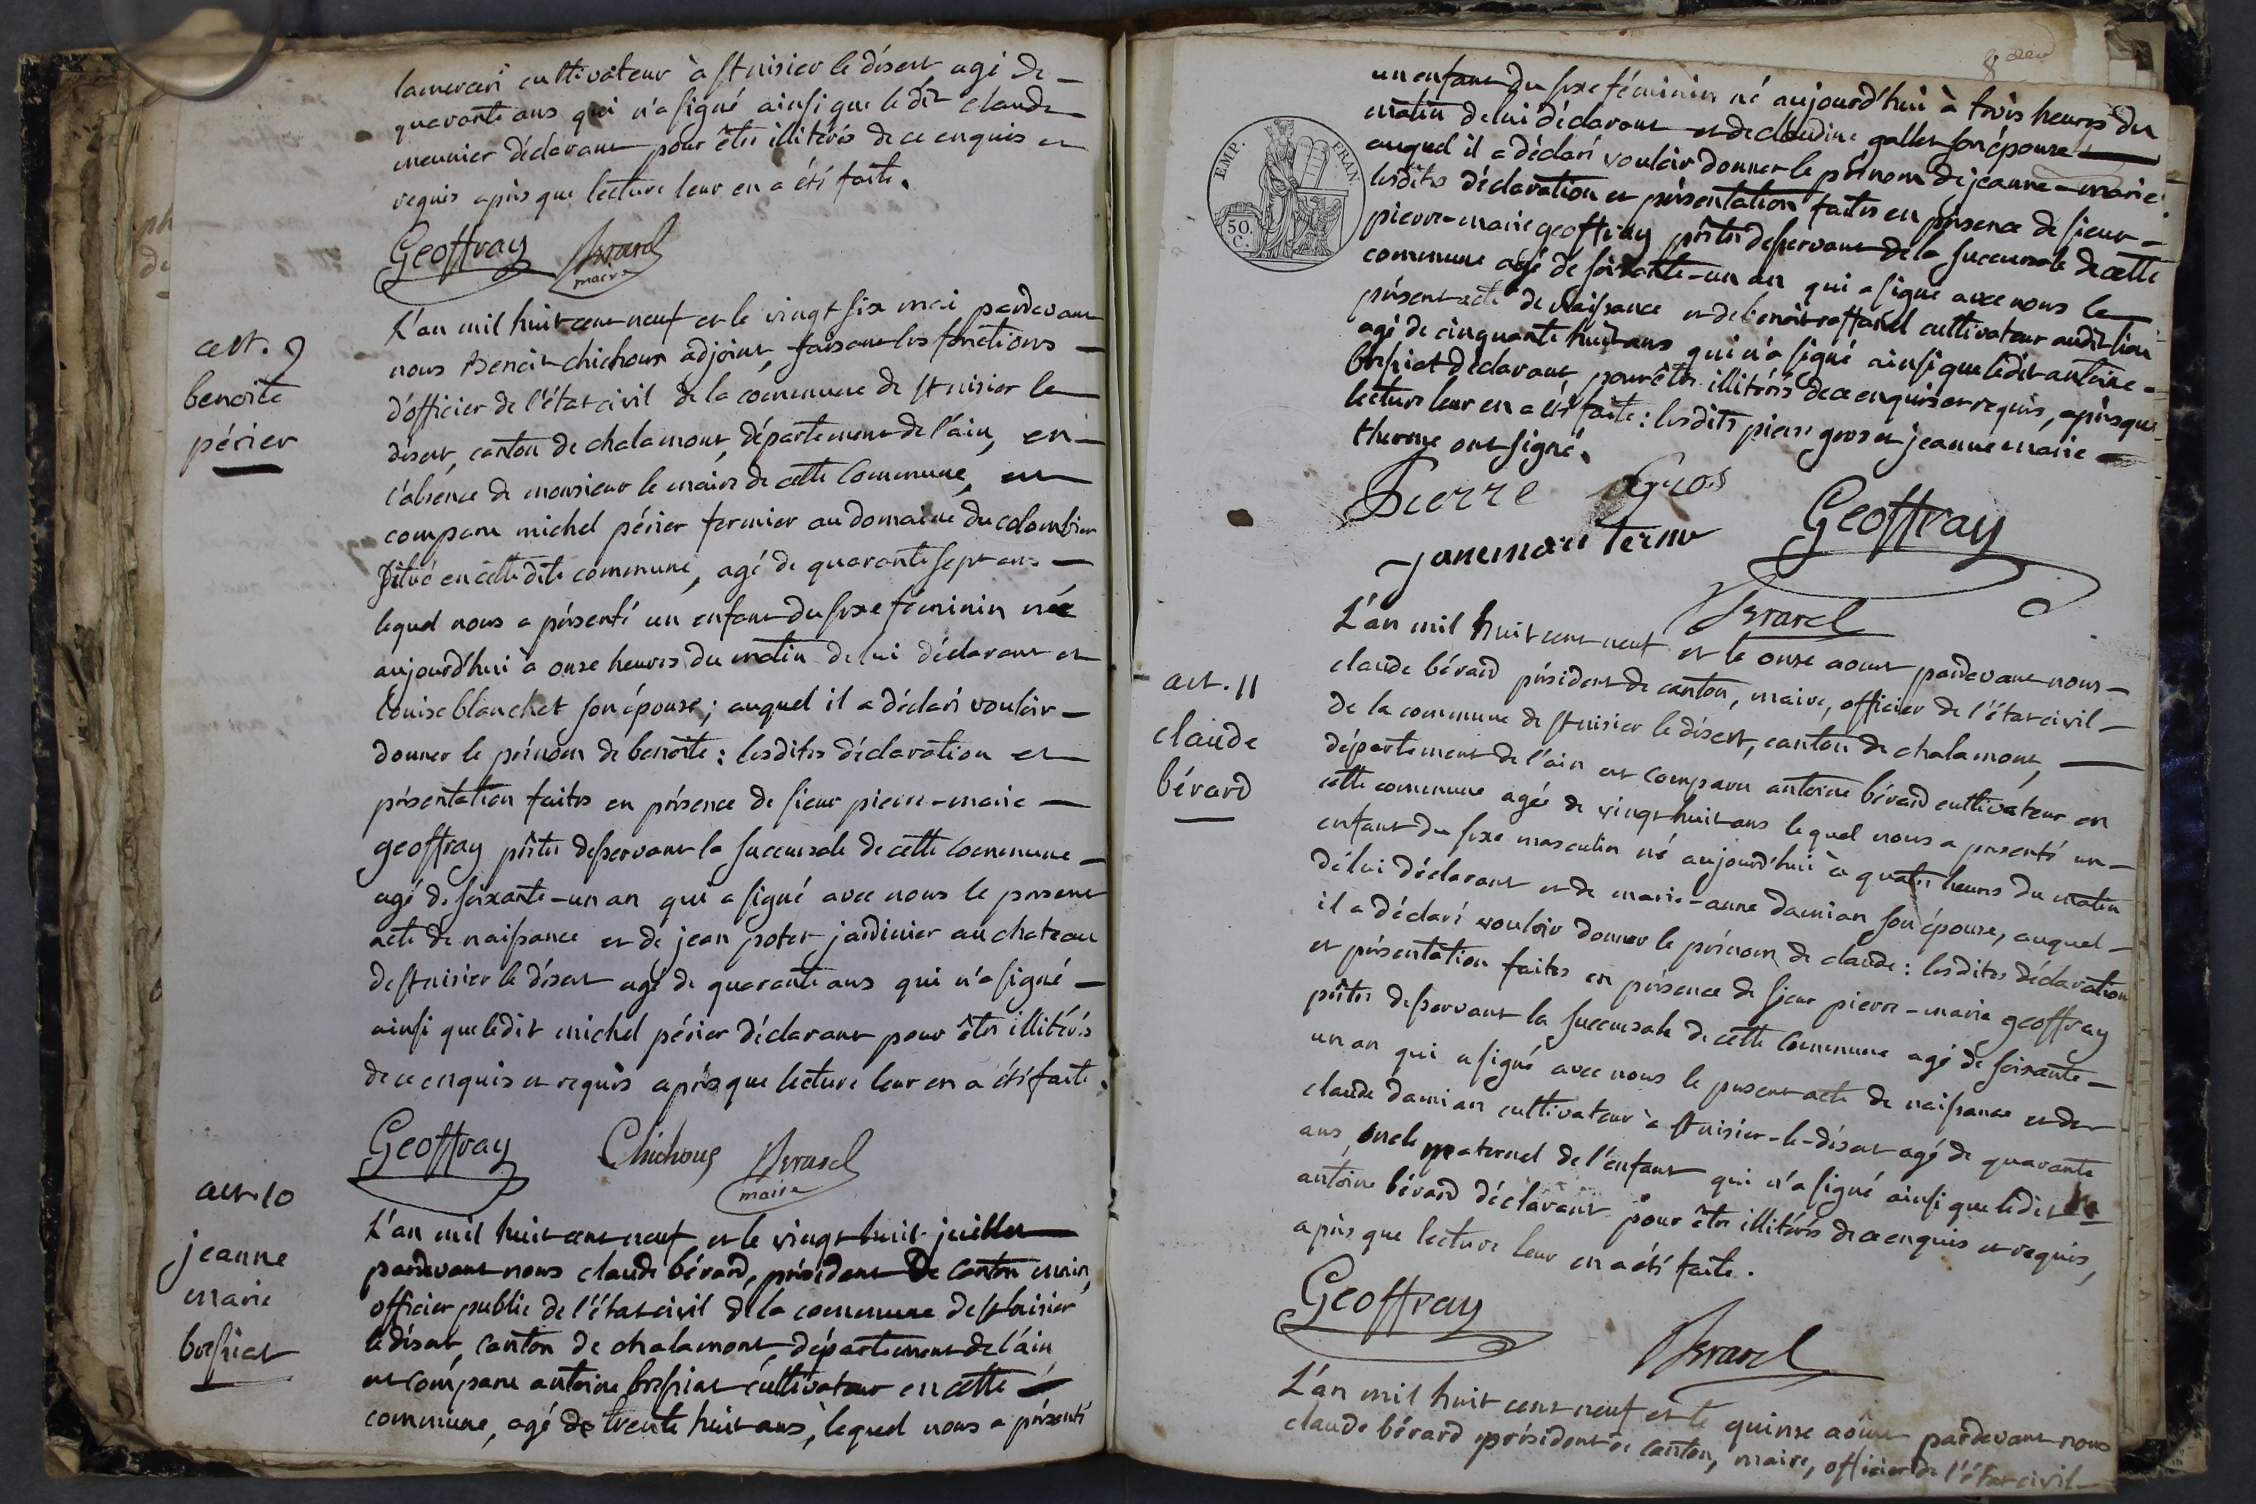 lamerceri cultivateur à St nisier le désert agé de
quarante ans qui n'a signé ainsi que le dit claude
meunier déclarant pour être illitérés de ce enquis et
requis après que lecture leur en a été faite.
Geoffray Berard
maire
act. 9
benoite
périer
L'an mil huit cent neuf et le vingt six mai pardevant
nous Benoit chichoux adjoint, faisant les fonctions
d'officier de l'état civil de la commune de St nisier le
désert, canton de chalamont, département de l'ain, en
l'absence de monsieur le maire de cette commune, est
comparu michel périer fermier au domaine du colombier
situé en cette dite commune, agé de quarante sept ans
lequel nous a présenté un enfant du sexe féminin née
aujourd'hui à onze heures du matin de lui déclarant et
louise blanchet son épouse; auquel il a déclaré vouloir
donner le prénom de benoîte: lesdites déclaration et
présentation faites en présence de sieur pierre-marie
geoffray prêtre desservant la succursale de cette commune
agé de soixante-un an qui a signé avec nous le présent
acte de naissance et de jean poter jardinier au chateau
de St nisier le désert agé de quarante ans qui n'a signé
ainsi que ledit michel périer déclarant pour être illitérés
de ce enquis et requis après que lecture leur en a été faite.
Geoffray Chichoux Berard
maire
act. 10
jeanne
marie
bressiat
L'an mil huit cent neuf et le vingt huit juillet
pardevant nous claude bérard, président de canton maire,
officier public de l'état civil de la commune de St nisier
le désert, canton de chalamont, département de l'ain
est comparu antoine bressiat cultivateur en cette
commune, agé de trente huit ans, lequel nous a présenté
un enfant du sexe féminin né aujourd'hui à trois heures du
matin de lui déclarant et de claudine gallet son épouse
auquel il a déclaré vouloir donner le prénom de jeanne-marie
lesdites déclaration et présentation faites en présence de sieur
pierre-marie geoffray prêtre desservant de la succursale de cette
commune agé de soixante-un an qui a signé avec nous le
présent acte de naissance et de benoit raffard cultivateur audit lieu
agé de cinquante huit ans qui n'a signé ainsi que ledit antoine
bressiat déclarant pour être illitérés de ce enquis et requis, après que
lecture leur en a été faite: lesdits pierre gros et jeanne marie
therme ont signé.
EMP. FRAN.
50.
C.
Pierre Gros
Janemari terme Geoffray
Berard
act. 11
claude
bérard
L'an mil huit cent neuf et le onze aoust pardevant nous
claude bérard président de canton, maire, officier de l'état civil
de la commune de St nisier le désert, canton de chalamont,
département de l'ain est comparu antoine bérard cultivateur en
cette commune agé de vingt huit ans lequel nous a présenté un
enfant du sexe masculin né aujourd'hui à quatre heures du matin
de lui déclarant et de marie-anne damian son épouse, auquel
il a déclaré vouloir donner le prénom de claude: lesdites déclaration
et présentation faites en présence de sieur pierre-marie geoffray
prêtre desservant la succursale de cette commune agé de soixante
un an qui a signé avec nous le présent acte de naissance et de
claude damian cultivateur à St nisier-le-désert agé de quarante
ans, oncle maternel de l'enfant qui n'a signé ainsi que ledit
antoine bérard déclarant pour être illitérés de ce enquis et requis,
après que lecture leur en a été faite.
Geoffray
Berard
L'an mil huit cent neuf et le quinze aoust pardevant nous
claude bérard président de canton, maire, officier de l'état civil